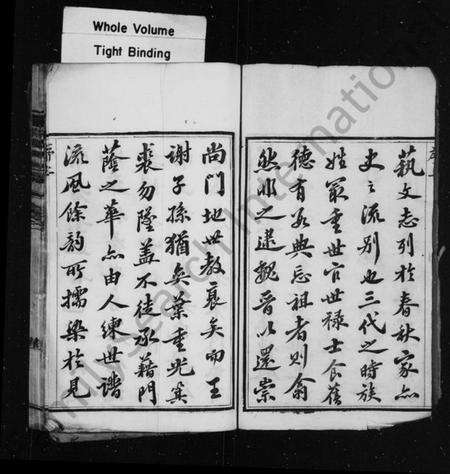 Whole Volume
Tight Binding
藝文志列於春秋家亦
史之流別也三代之時族
姓最重世官世祿士食舊
德有數典忘祖者則
然非之逮魏晉以還崇
尚門地世教衰矣而王
謝子孫猶矣葉重光箕
裘勿隆蓋不徒承藉門
蔭之華亦由人練世譜
流風餘韵所擩染於見
MySearch International